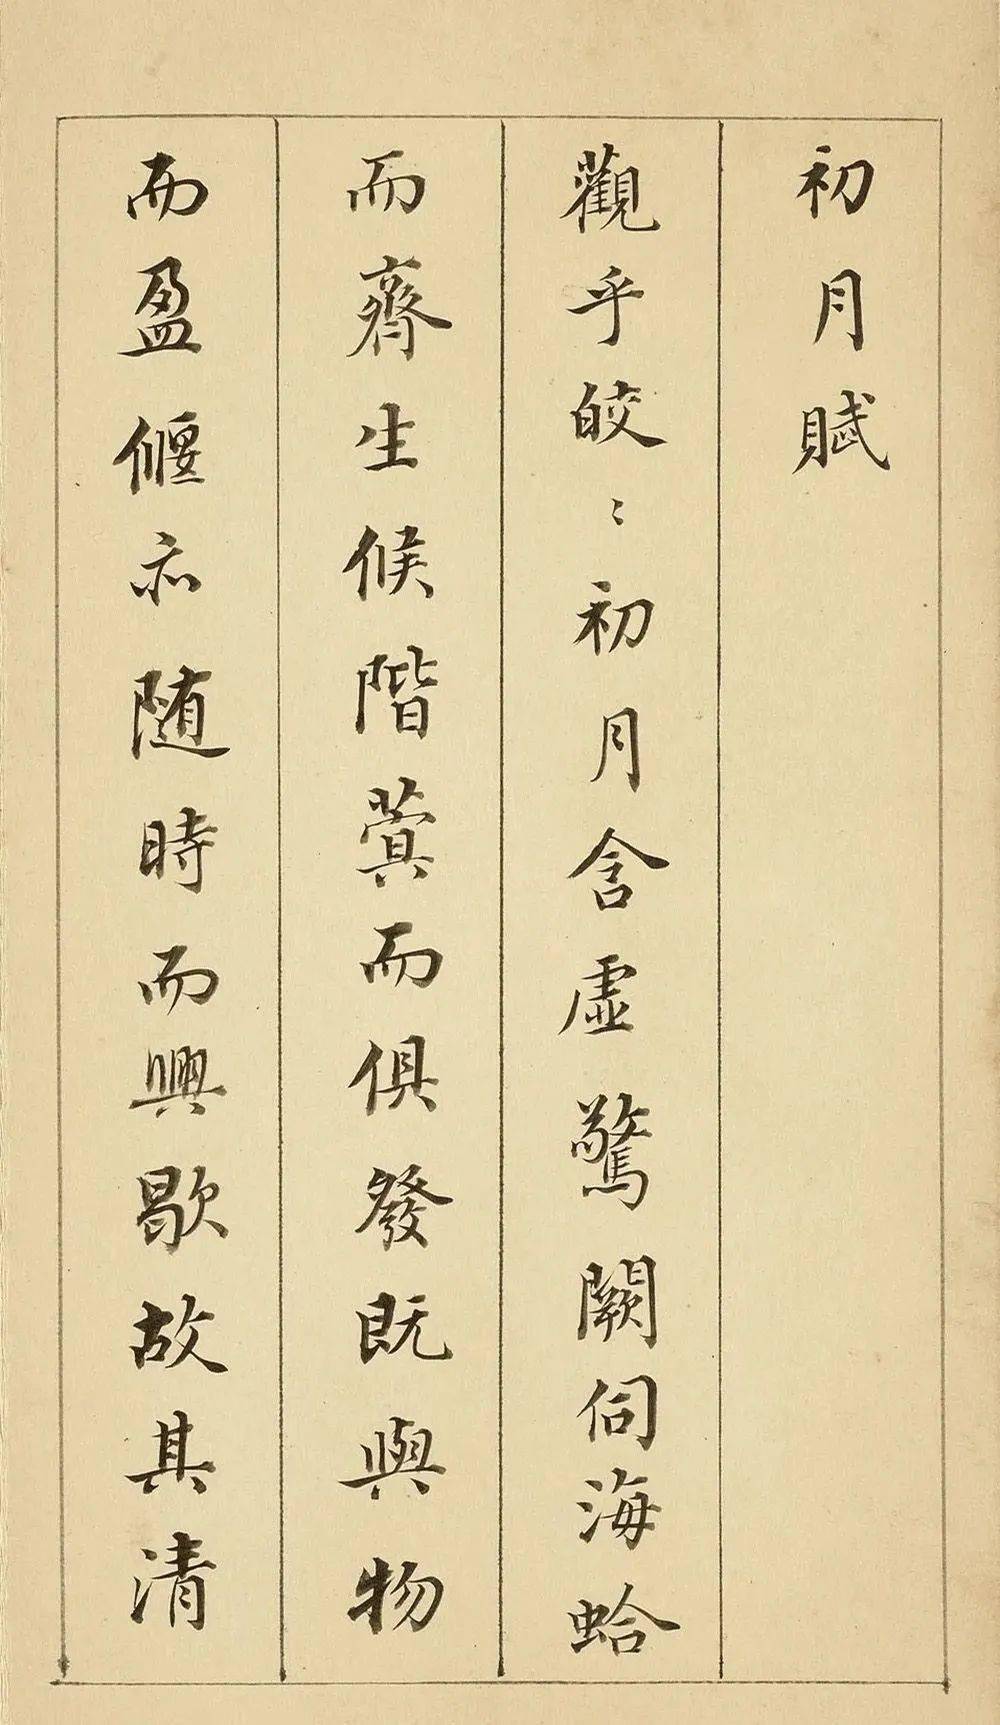 初月賦
觀乎皎〻初月含虛驚闕伺海蛤
而齊生候階蓂而俱發既與物
而盈偃亦随時而興歇故其清